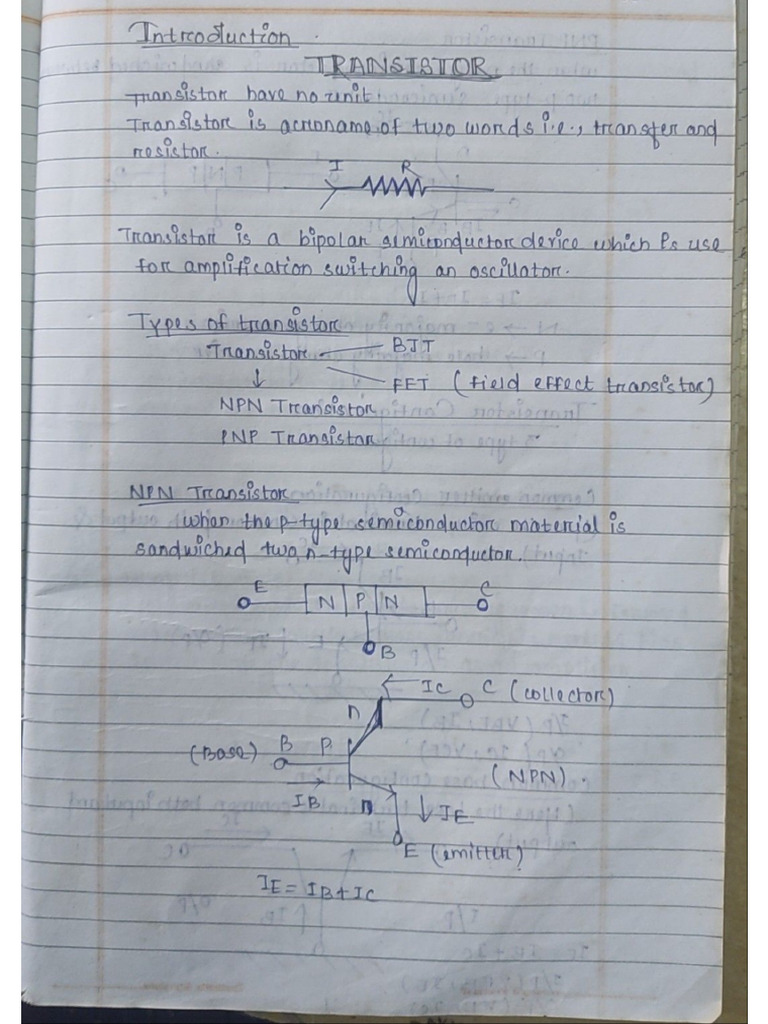 Introduction
TRANSISTOR
Transistor have no unit.
Transistor is acroname of two words i.e., transfer and
resistor.
I R
Transistor is a bipolar semiconductor device which is use
for amplification switching an oscillator.
Types of transistor
Transistor BJT
↓ FET (field effect transistor)
NPN Transistor
PNP Transistor
NPN Transistor
when the p-type semiconductor material is
sandwiched two n-type semiconductor.
E N P N C
B
← IC C (collector)
n
(Base) B P
(NPN).
IB n ↓ IE
E (emitter)
IE = IB + IC